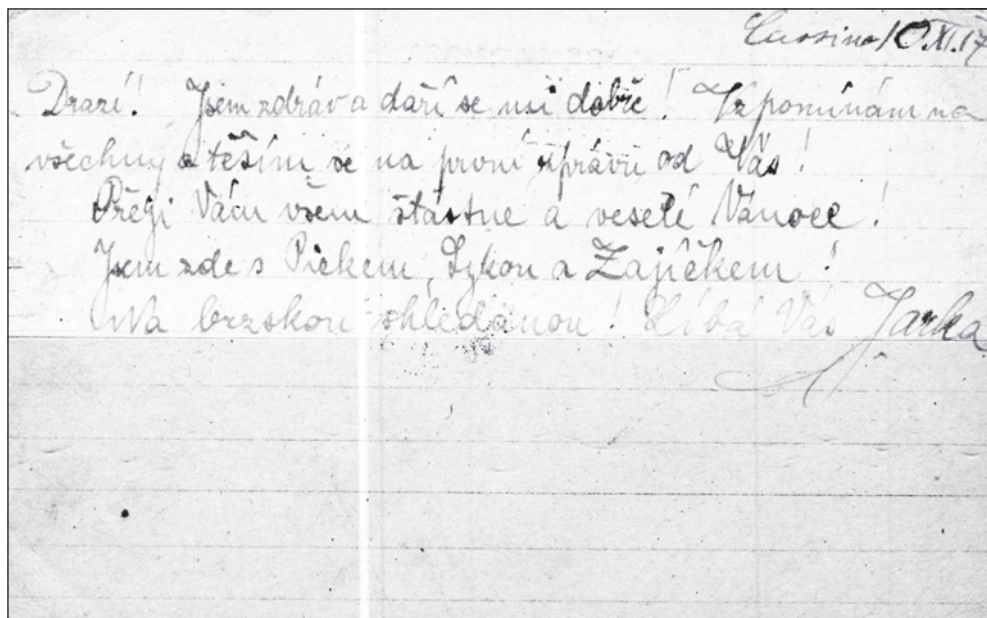 Cassino 10.XI.17
Drazí! Jsem zdráv a daří se mi dobře! Vzpomínám na
všechny a těším se na první zprávu od Vás!
Přeji Vám všem štastne a veselé Vánoce!
Jsem zde s Pickem, Sykou a Zajíčkem!
Na brzskou shledanou! Líbá Vás Jarka